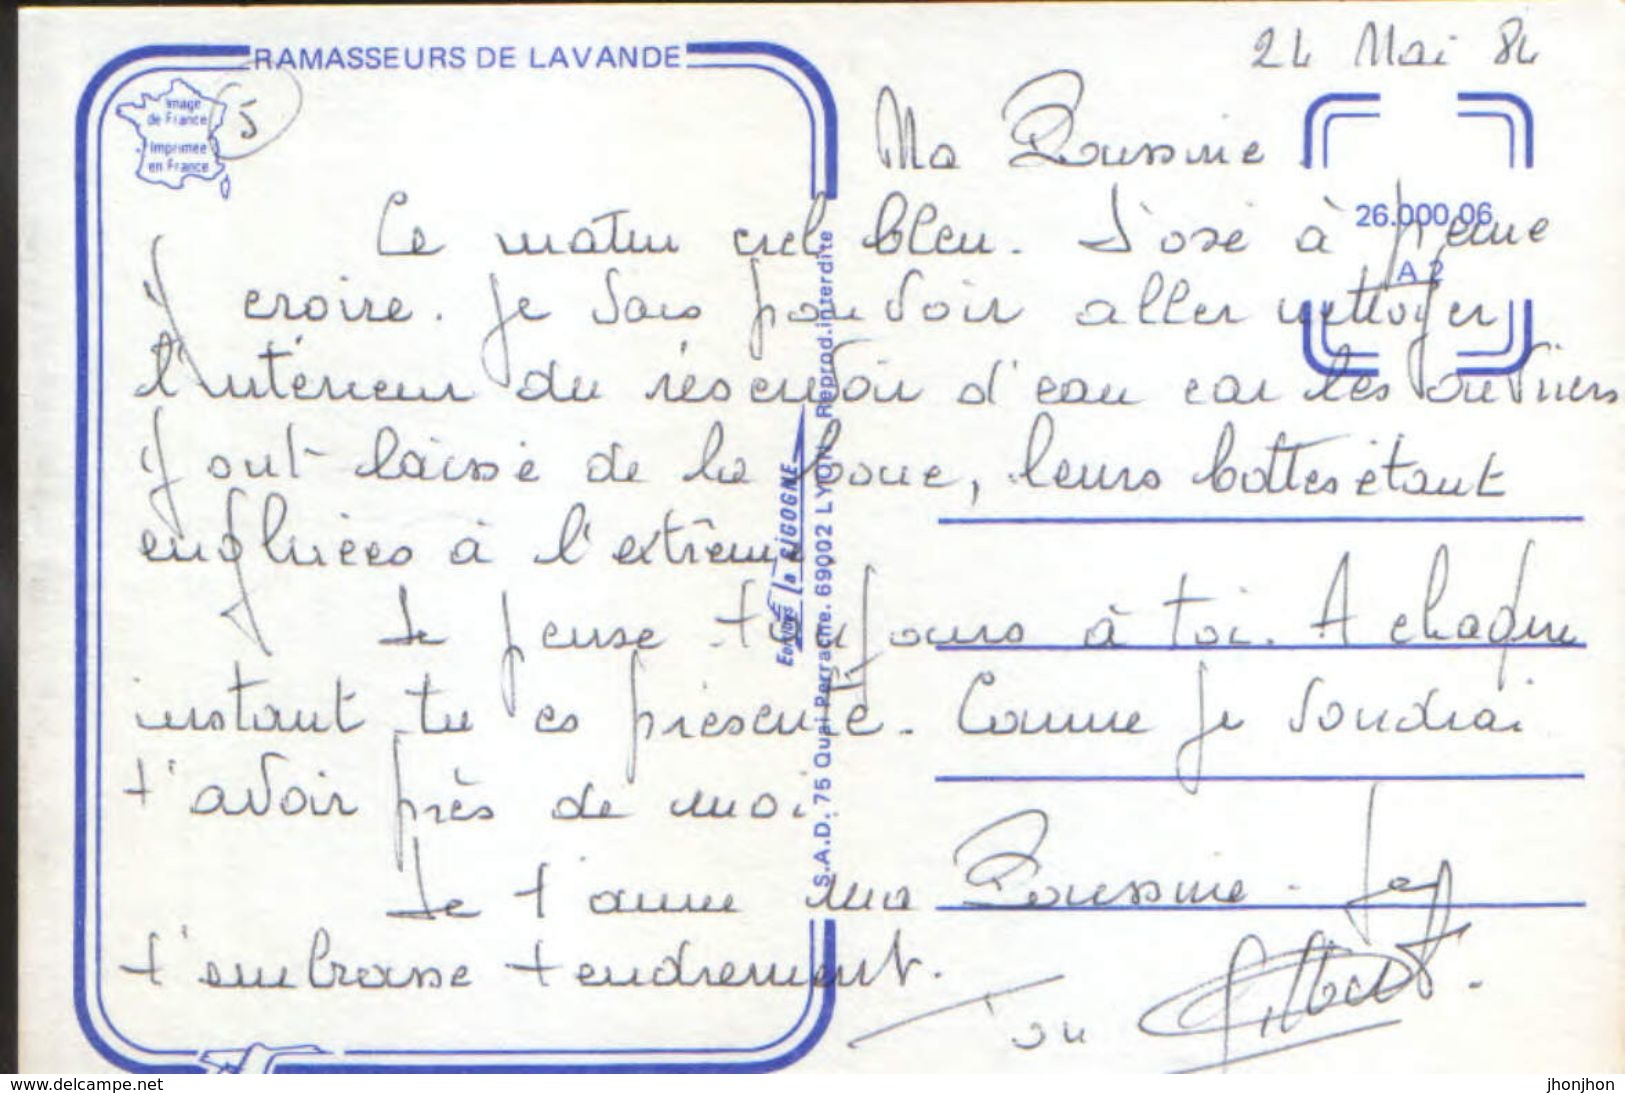 RAMASSEURS DE LAVANDE
Image
de France
Imprimée
en France
5
24 Mai 84
Ma Poussine
26.000.06
A 2
Ce matin ciel bleu. J'ose à peine
y croire. Je vais pouvoir aller nettoyer
l'intérieur du réservoir d'eau car les ouvriers
y ont laissé de la boue, leurs bottes étant
engluées à l'extrême
Je pense toujours à toi. A chaque
instant tu es présente. Comme je voudrai
t'avoir près de moi
Je t'aime ma Poussine. Je
t'embrasse tendrement.
Ton Gilbert.
Editions la CIGOGNE
S.A.D. 75 Quai Perrache. 69002 LYON Reprod. interdite
www.delcampe.net
jhonjhon